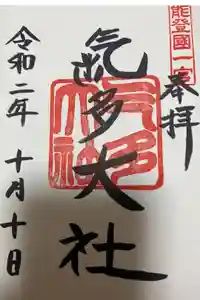 能登國一宮
奉拝
氣多大社
令和二年 十月十日